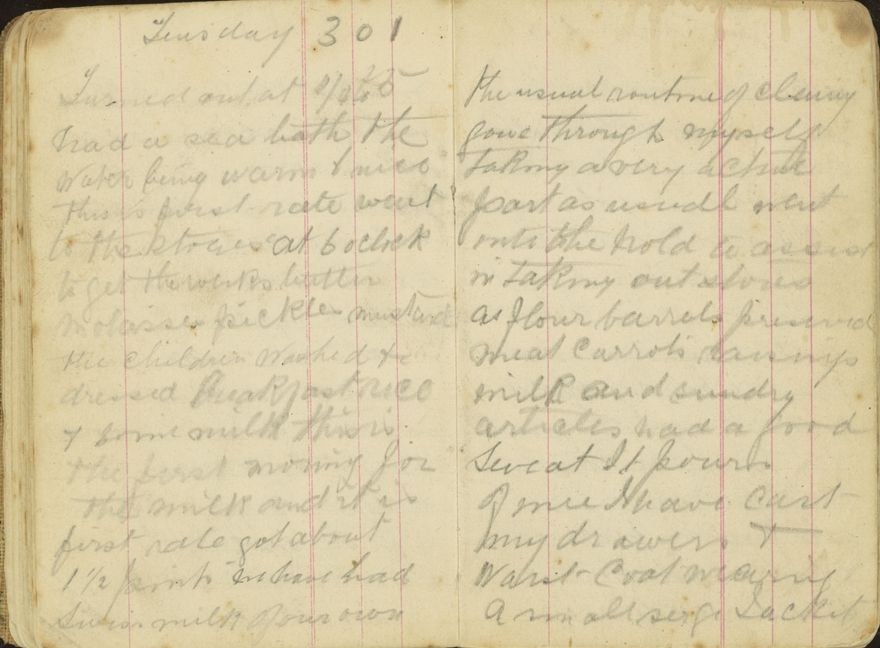 Tuesday 301
Turned out at
had a sea bath the
water being warm & nice
this is first rate went
to the stores at 6 oclock
to get the weeks butter
molasses pickles mustard
the children washed &
dressed Breakfast rice
& some milk this is
the first morning for
the milk and it is
first rate got about
1 1/2 pints we have had
Swiss milk of our own
the usual routine of cleaning
gone through myself
taking a very active
part as usual went
into the hold to assist
in taking out stores
as flour barrels preserved
meat carrots raisings
milk and sundry
articles had a good
sweat It pours
of me I have cast
my drawers &
Waist-Coat wearing
a small serge Jacket